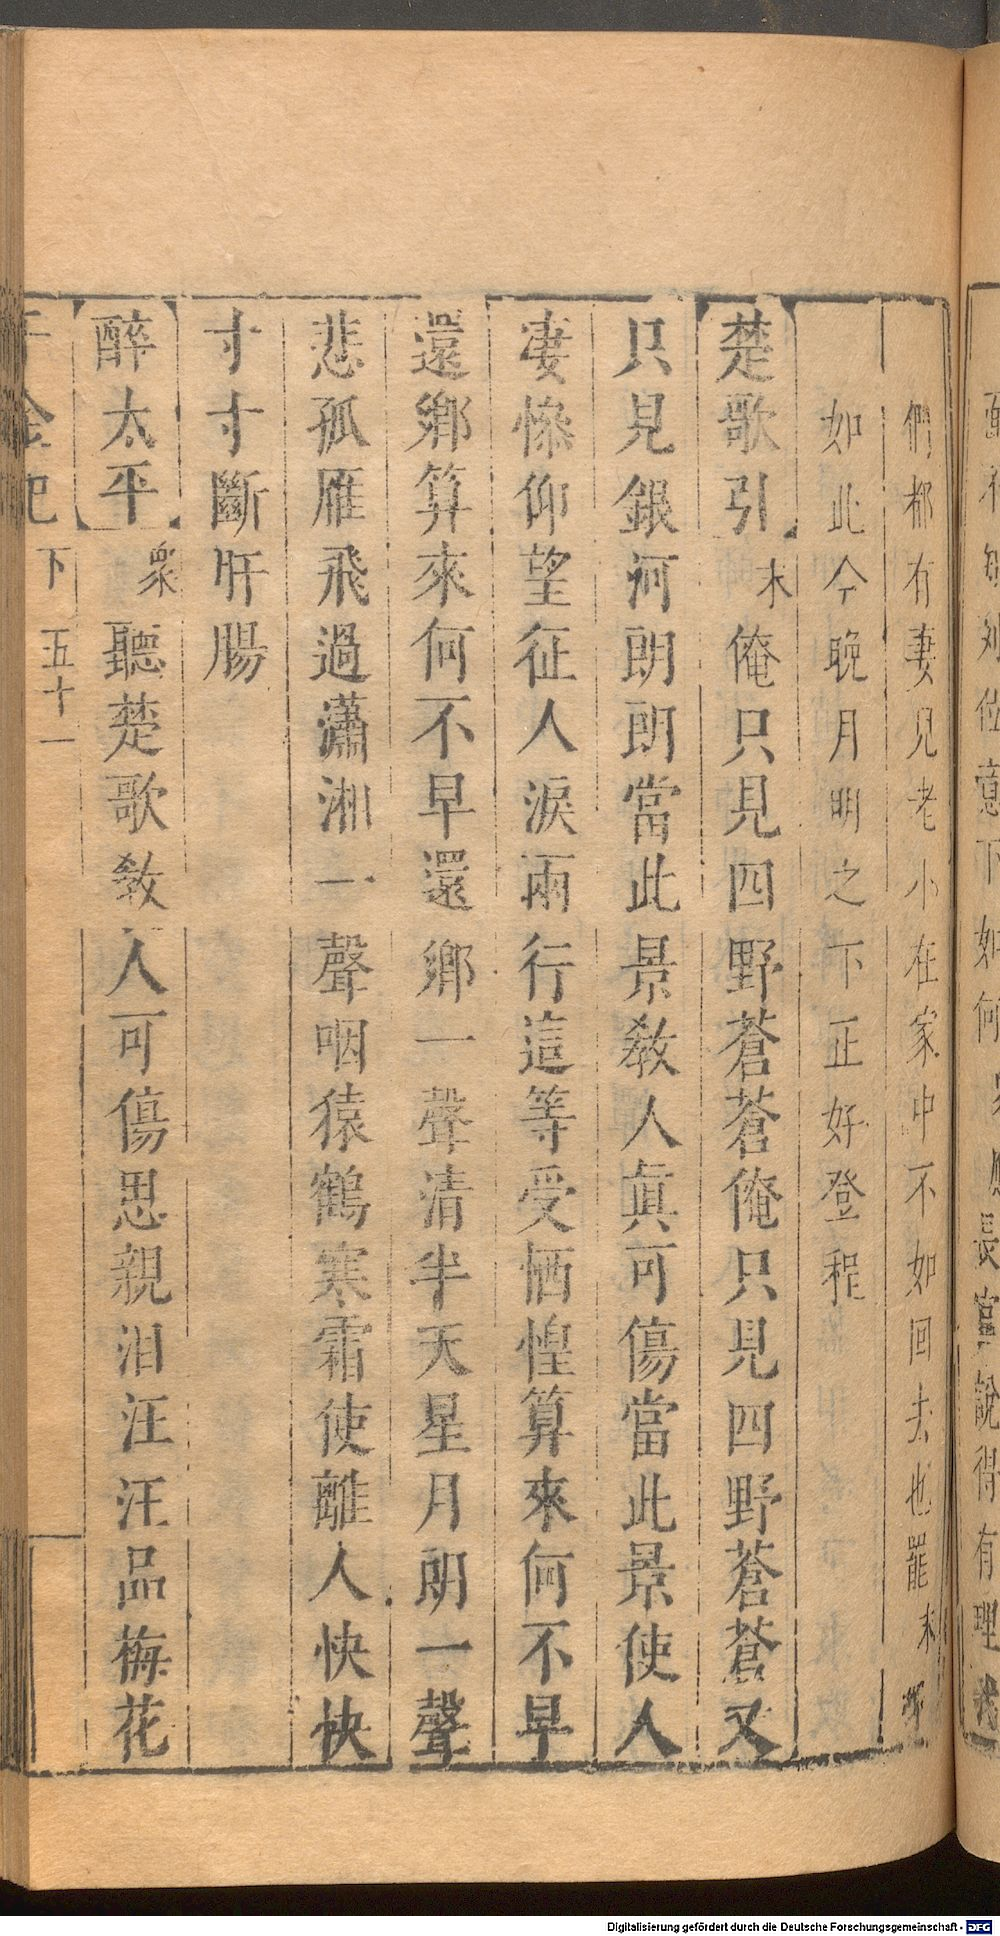 們都有妻兒老小在家中不如回去也罷末
如此今晚月明之下正好登程
【楚歌引】末俺只見四野蒼蒼俺只見四野蒼蒼又
只見銀河朗朗當此景教人眞可傷當此景使人
凄慘仰望征人淚兩行這等受恓惶算來何不早
還鄉算來何不早還鄉一聲清半天星月朗一聲
悲孤雁飛過瀟湘一聲咽猿鶴寒霜使離人怏怏
寸寸斷肝腸
【醉太平】衆聽楚歌教人可傷思親泪汪汪品梅花
千金記 下 五十一
意下如何
長官說得有理
Digitalisierung gefördert durch die Deutsche Forschungsgemeinschaft - DFG